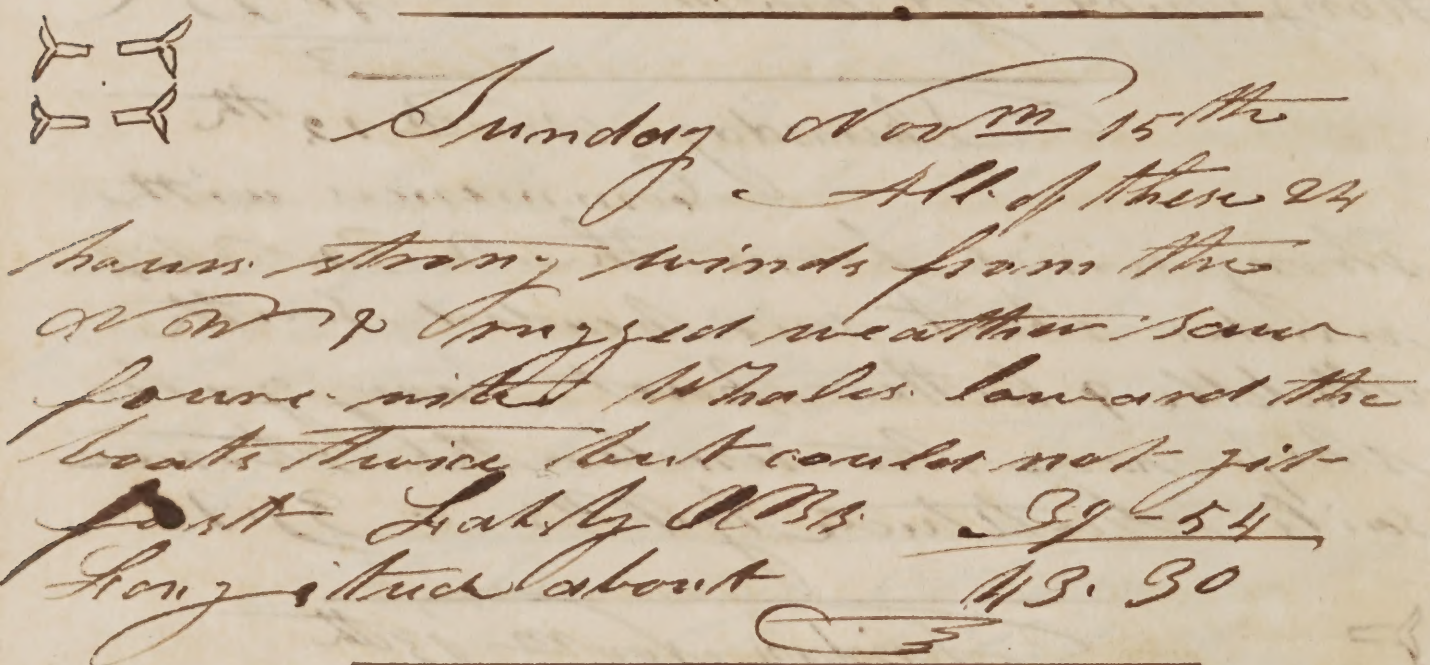 Sunday Novm 15th
All of these 24
hours strong winds from the
N W & rugged weather saw
foure rite Whales lowared the
boats twice but could not git
fast Lat by OBs 39-54
Longitude about 43.30